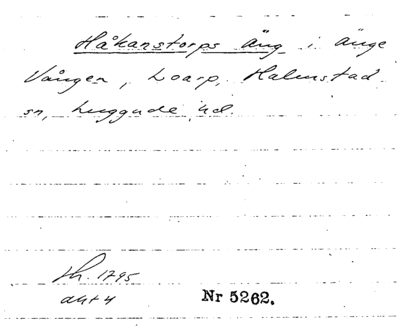 Håkanstorps äng i änge
Vången, Loarp, Halmstad
sn, Luggude hd.
th. 1795
akt 4
Nr 5262.